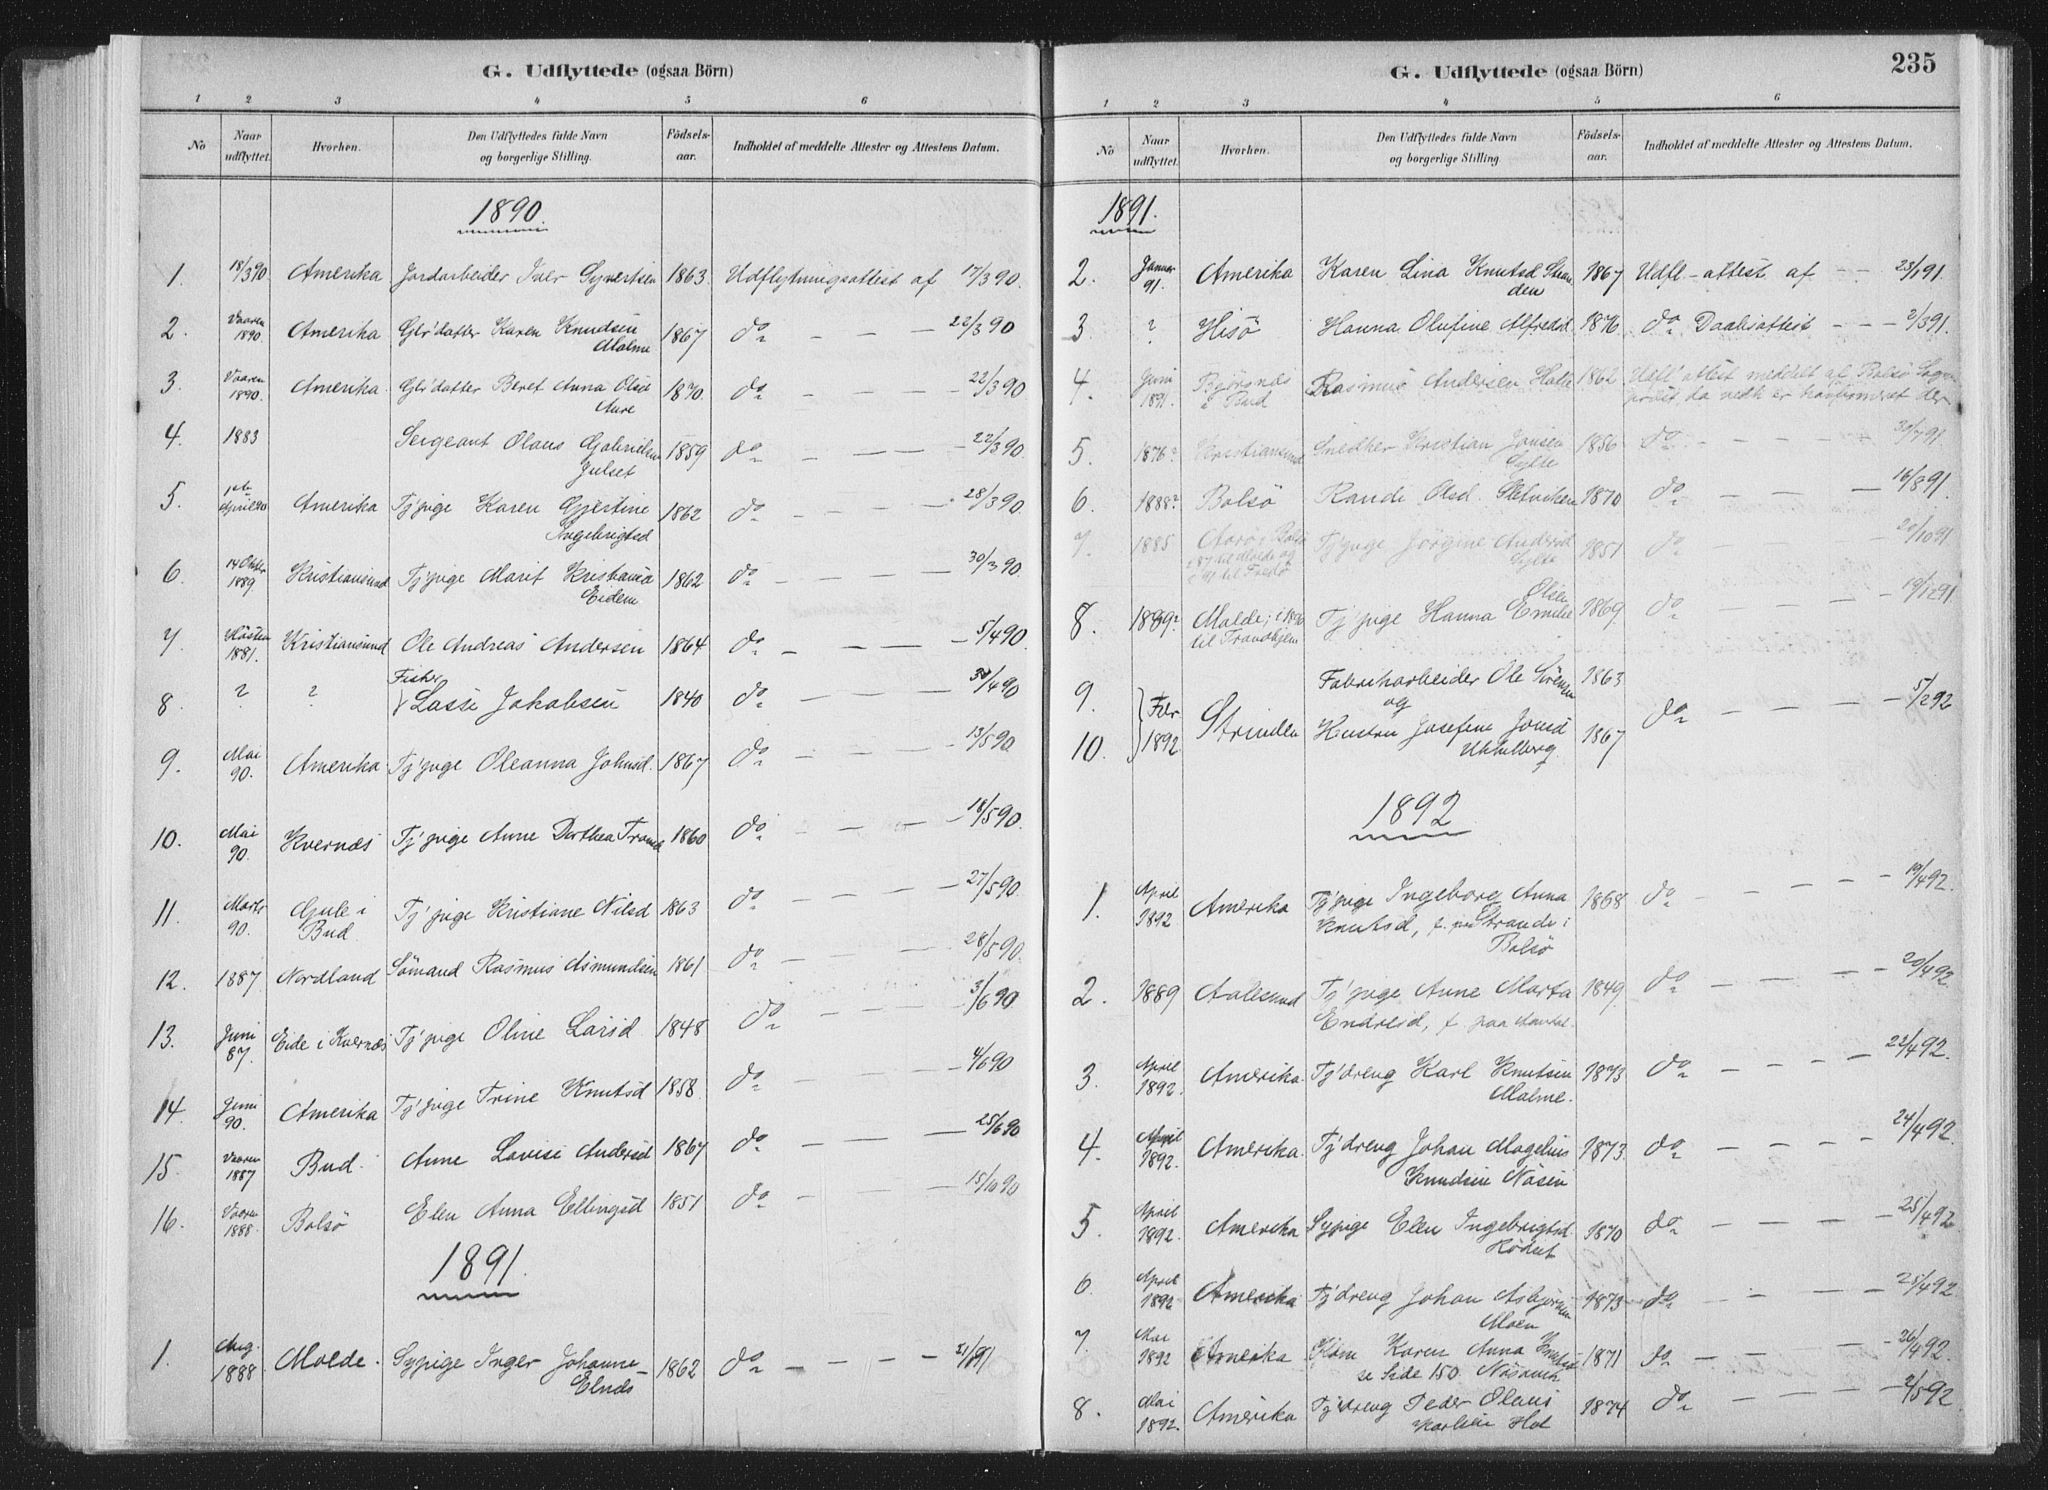 G. Udflyttede (ogsaa Börn)
1 2 3 4 5 6
No Naar udflyttet. Hvorhen. Den Udflyttedes fulde Navn og borgerlige Stilling. Födsels-aar. Indholdet af meddelte Attester og Attestens Datum.
1890.
1. 18/3 90. Amerika Jordarbeider Iver Syvertsen 1863 Udflytningsattest af 17/3 90.
2. Vaaren 1890. Amerika Gbr'datter Karen Knudsen 1867 do — — 22/3 90
Malme
3. Vaaren 1890. Amerika. Gbr'datter Beret Anna Olsd 1870. do — — — 22/3 90
Aure
4. 1883 Sergeant Olaus Gabrielsen 1859 do — — — 22/3 90.
Julset
5. 1ste April 90 Amerika Tj'pige Karen Gjertine 1862 do — — — 28/3 90.
Ingebrigtsd
6. 14 Oktbr 1889. Kristiansund Tj'pige Marit Kristiansd 1862 do — — — 30/3 90.
Eidem
7. Hösten 1881. Kristiansund Ole Andreas Andersen 1864 do — — — 5/4 90.
8. ? ? Fisker
Lasse Jakobsen 1840 do — — — 30/4 90
9. Mai 90. Amerika Tj'pige Oleanna Johnsd. 1867 do — — — 13/5 90
10. Mai 90. Kvernæs Tj'pige Anne Dorthea 1860 do — — — 18/5 90.
11. Marts 90. Gule i Bud Tj'pige Kristiane Nilsd 1863 do — — — 27/5 90.
12. 1887 Nordland Sömand Rasmus Asmundsen 1861 do — — — 28/5 90.
13. Juni 87. Eide i Kvernæs Tj'pige Oline Larsd 1848 do — — — 3/6 90
14. Juni 90. Amerika Tj'pige Trine Knutsd 1858. do — — — 4/6 90
15. Vaaren 1887 Bud. Anne Lovise Andersd 1867 do — — — 25/6 90
16. Vaaren 1888. Bolsö Elen Anna Ellingsd 1851 do — — — 15/10 90
1891.
1. Aug. 1888 Molde. Sypige Inger Johanne 1862 do — — — 21/1 91
Elnæs
235
G. Udflyttede (ogsaa Börn)
1 2 3 4 5 6
No Naar udflyttet. Hvorhen. Den Udflyttedes fulde Navn og borgerlige Stilling. Födsels-aar. Indholdet af meddelte Attester og Attestens Datum.
1891.
2. Januar 91. Amerika Karen Lina Knutsd Stran 1867 Udfl.-attest af — — 23/1 91.
den
3 ? Hisö Hanna Olufine Alfredsd. 1876 do Daabsattest — — — 2/3 91.
4. Juni 1891. Björsnæs i Bud Rasmus Andersen 1862 Udfl'attest meddelt af Bolsö Sogne
præst, da vedk er konfirmeret der
5. 1876? Kristiansund Snedker Kristian Jonsen 1856 do — — — 30/7 91.
Sylte
6. 1888? Bolsö Randi Olsd. Sletviken 1870 do — — — 16/8 91.
7. 1885 Aarö i Bolsö
87 til Molde og
til Fredö Tj'pige Jörgine Andersd 1851 do — — — 20/10 91
Sylte
8. 1889? Molde; i 1890
til Trondhjem Tj'pige Hanna Emilie Olsen 1869. do — — — 19/12 91
9. Fabrikarbeider Ole Sörensen 1863
og
10. Febr 1892. Strinden Hustru Josefine Jonsd 1867 do — — — 5/2 92
1892
1. April 1892 Amerika Tj'pige Ingeborg Anna 1868 do — — — 19/4 92.
Knutsd, f. paa Strande i
Bolsö
2. 1889 Aalesund Tj'pige Anne Marta 1849. do — — — 20/4 92
Endresd, f. paa
3. April 1892. Amerika. Tj'dreng Karl Knutsen 1873 do — — — 22/4 92.
Malme.
4. April 1892. Amerika. Tj'dreng Johan Magelius 1873. do — — — 24/4 92.
Knudsen Nåsen
5. April 1892. Amerika Sypige Elen Ingebrigtsd. 1870 do — — — 25/4 92
Rödset
6 April 1892 Amerika Tj'dreng Johan Asbjörnsen 1873 do — — — 25/4 92
Moen
7. Mai 1892 Amerika Karen Anna Knutsd 1871 do — — — 26/4 92.
se Side 150 Nåsen
8. Mai 1892. Amerika Tj'dreng Peder Olaus 1874 do — — — 2/5 92
Karlsen Hol